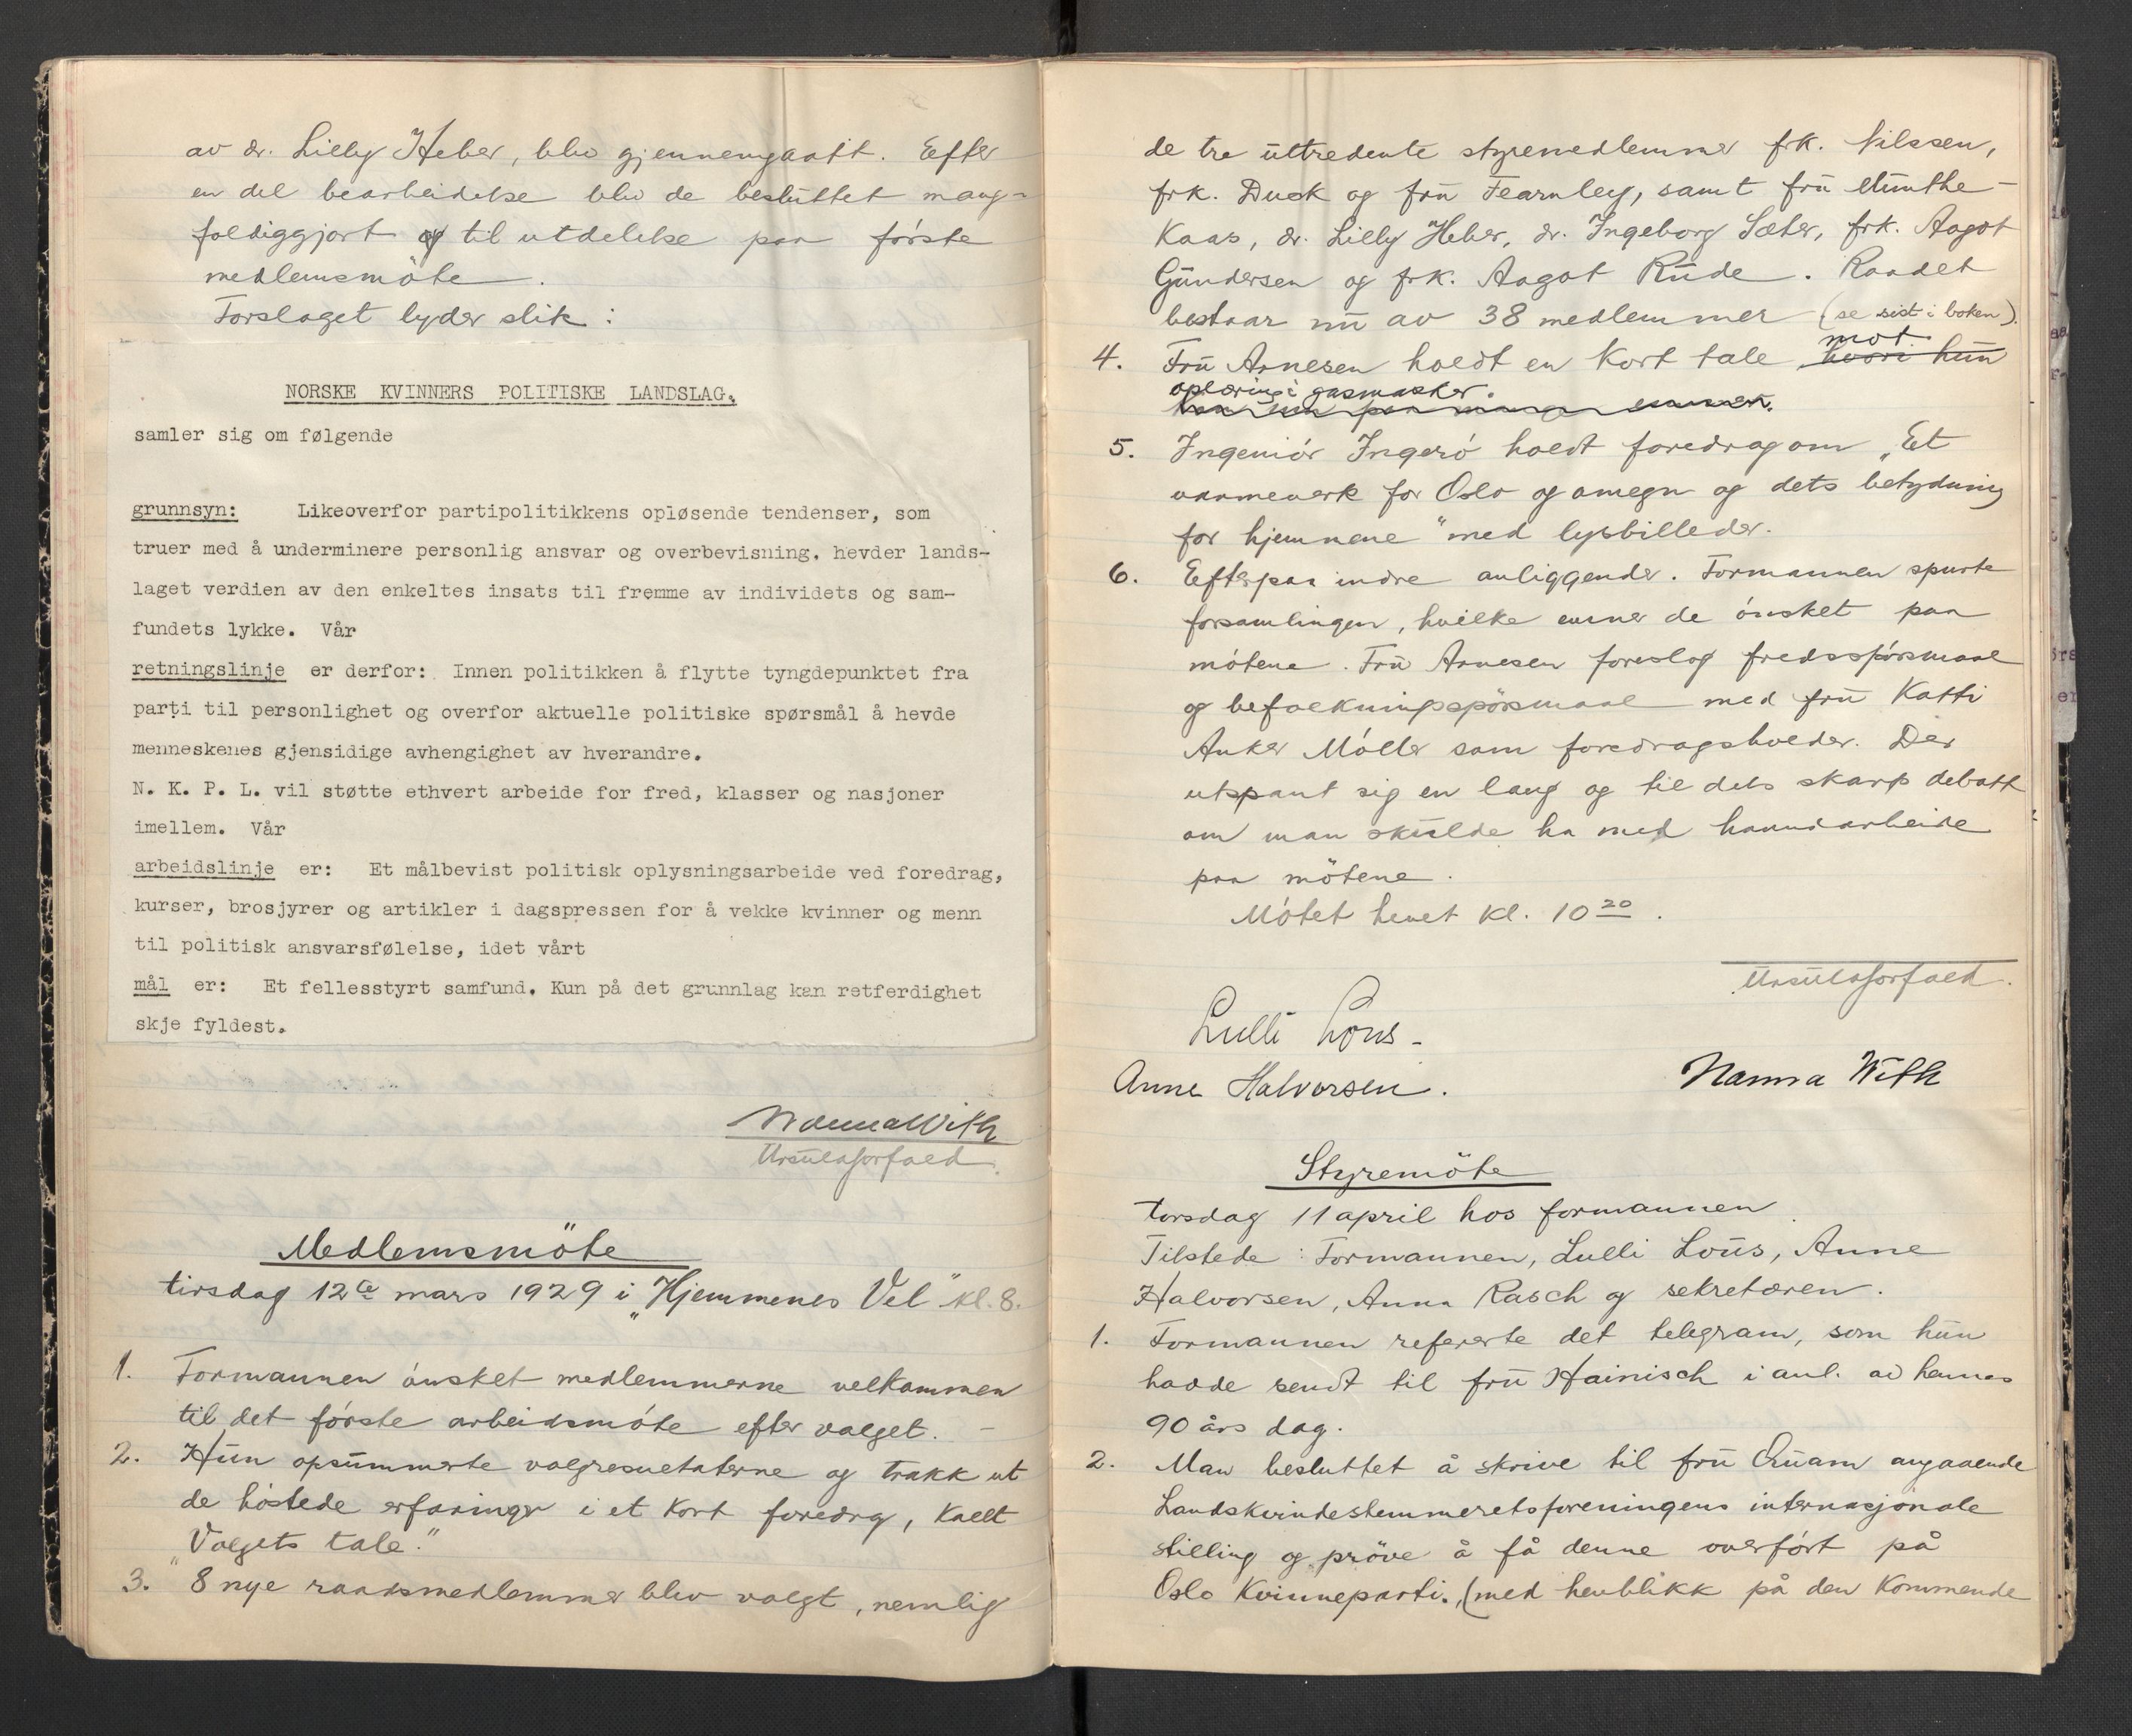 av dr. Lilly Heber, blev gjennemgaatt. Efter
en del bearbeidelse blev de besluttet mang-
foldiggjort og til utdelelse paa første
medlemsmöte.
Forslaget lyder slik:
NORSKE KVINNERS POLITISKE LANDSLAG.
samler sig om følgende
grunnsyn: Likeoverfor partipolitikkens opløsende tendenser, som
truer med å underminere personlig ansvar og overbevisning, hevder lands-
laget verdien av den enkeltes insats til fremme av individets og sam-
fundets lykke. Vår
retningslinje er derfor: Innen politikken å flytte tyngdepunktet fra
parti til personlighet og overfor aktuelle politiske spørsmål å hevde
menneskenes gjensidige avhengighet av hverandre.
N. K. P. L. vil støtte ethvert arbeide for fred, klasser og nasjoner
imellem. Vår
arbeidslinje er: Et målbevist politisk oplysningsarbeide ved foredrag,
kurser, brosjyrer og artikler i dagspressen for å vekke kvinner og menn
til politisk ansvarsfølelse, idet vårt
mål er: Et fellesstyrt samfund. Kun på det grunnlag kan retferdighet
skje fyldest.
Nanna With
Ursula Sorfald
Medlemsmöte
tirsdag 12te mars 1929 i "Hjemmenes Vel" kl. 8.
1. Formannen ønsket medlemmerne velkommen
til det første arbeidsmøte efter valget. –
2. Hun opsummerte valgresultaterne og trakk ut
de høstede erfaringer i et kort foredrg, kallt
"Valgets tale."
3. 8 nye raadsmedlemmer blev valgt, nemlig
de tre uttredente styremedlemmer frk. Nilssen,
frk. Duck og fru Fearnley, samt fru Munthe-
Kaas, dr. Lilly Heber, dr. Ingeborg Sæter, frk. Aagot
Gundersen og frk. Aagot Rude. Raadet
bestaar nu av 38 medlemmer (se sist i boken).
4. Fru Arnesen holdt en kort tale hvori hun mot
oplæring i gasmasker.
5. Ingeniør Ingerø holdt foredrag om "Et
varmeverk for Oslo og omegn og dets betydning
for hjemmene" med lysbilleder.
6. Efterpaa indre anliggender. Formannen spurte
forsamlingen, hvilke emner de ønsket paa
møtene. Fru Arnesen foreslog fredsspørsmaal
og befolkningsspörsmaal med fru Katti
Anker Møller som foredragsholder. Der
utspant sig en lang og til dels skarp debatt
om man skulde ha med haandarbeide
paa mötene.
Møtet hevet kl. 10 20.
Ursula Sorfald.
Lulli Lous –
Anne Halvorsen.
Nanna With
Styremöte
torsdag 11 april hos formannen.
Tilstede: Formannen, Lulli Lous, Anne
Halvorsen, Anna Rasch og sekretæren.
1. Formannen refererte det telegram, som hun
hadde sendt til fru Hainisch i anl. av hennes
90 års dag.
2. Man besluttet å skrive til fru Quam angaaende
Landskvindestemmeretsforeningens internasjonale
stilling og pröve å få denne overført på
Oslo Kvinneparti. (med henblikk på den kommende